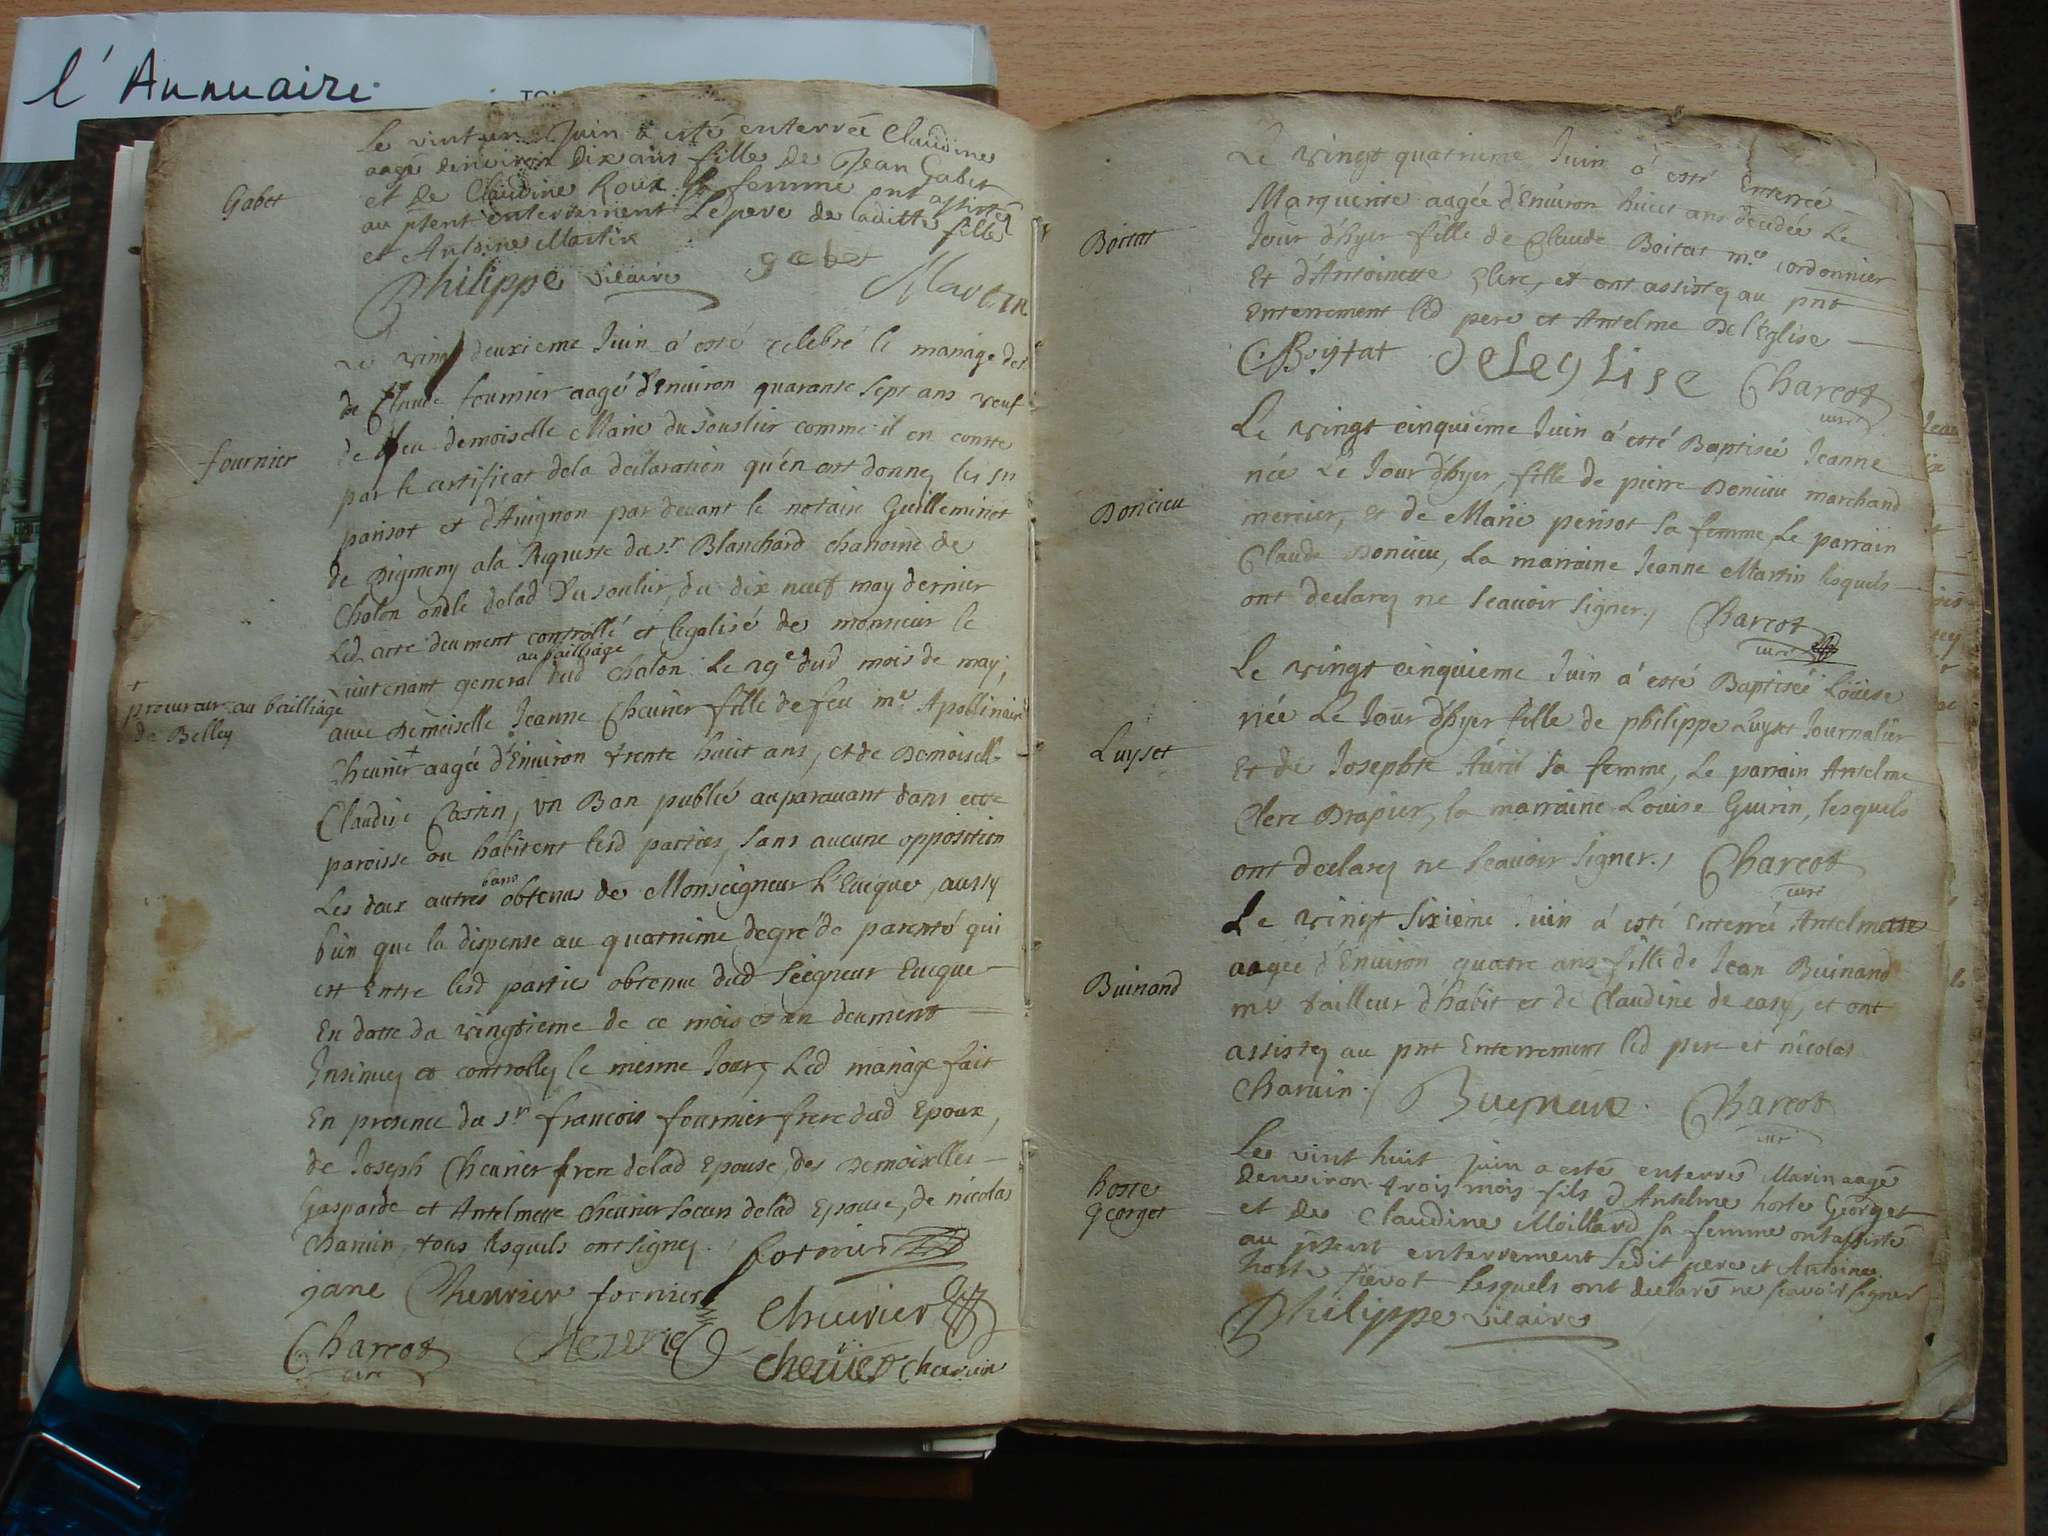 l'Annuaire
Le vint un Juin a esté enterrée Claudine
aagé denviron dix ans fille de Jean Gabet
Gabet
et de Claudine Roux sa femme ont assisté
au pñent enterrement Le pere de laditte fille
et Antoine Martin
Philippe vicaire gabet Martin
Le vingt deuxieme Juin a' esté celebré le mariage des
de Claude fournier aagé d'Environ quarante sept ans veuf
de feu demoiselle Marie du Soustier comme il en conste
fournier
par le certificat de la declaration qu'en ont donnez les sn
parisot et d'Auignon par deuant le notaire Guilleminot
de Digmeny a la Requeste du sr Blanchard chanoine de
Chalon oncle delad Du soulier, du dix neuf may dernier
Led acte deument controllé et legalisé de monsieur le
au bailliage
Lieutenant general dud Chalon Le 29e dud mois de may,
+
procureur au bailliage
de Belley
auec Demoiselle Jeanne Cheurier fille de feu me Apollinaire
Cheurier + aagée d'Enuiron trente huict ans, et de Demoiselle
Claudine Castin, vn Ban publié auparauant dans cette
paroisse ou habitent lesd parties, sans aucune opposition
bans
Les deux autres obtenus de Monseigneur L'Euêque, aussy
bien que la dispense au quatrieme degré de parenté qui
est Entre lesd parties obtenue dud Seigneur Eueque
En datte du vingtieme de ce mois et an deument
Insinuez et controllez le mesme Jour, Led mariage fait
En presence du sr francois fournier frere dud Epoux,
de Joseph Cheurier frere delad Epouse, des Demoiselles
Gasparde et Antelmette Cheurier soeurs delad Epouse, de nicolas
Charuin, tous lesquels ont signez. fornier
jane Cheurier fornier Cheurier
Charcot cheurier Charuin
curé
Le vingt quatrieme Juin a' esté Enterrée
Marguerite aagée d'Enuiron huict ans decedée Le
Boitat
Jour d'hyer fille de Claude Boitat me cordonnier
Et d'Antoinette Clerc, et ont assistez au pnt
Enterrement led pere et Antelme De l'Eglise
C. Boytat deleglise Charcot
curé
Le vingt cinquieme Juin a' esté Baptisée Jeanne
née Le Jour d'hyer, fille de pierre Doncieu marchand
Doncieu
mercier, et de Marie perisot sa femme, Le parrain
Claude Doncieu, La marraine Jeanne Martin lesquels
ont declarez ne Sçauoir signer., Charcot
curé
Le vingt cinquieme Juin a' esté Baptiseé Loüise
née Le Jour d'hyer fille de philippe Luyset Journalier
Luyset
Et de Josephte sa femme, Le parrain Antelme
Clerc Drapier, la marraine Louise Guirin, lesquels
ont declarez ne Sçauoir signer., Charcot
curé
Le vingt sixieme Juin a' esté Enterrée Antelmette
aagée d'Enuiron quatre ans fille de Jean Buinand
Buinand
me tailleur d'habit et de Claudine de easy, et ont
assistez au pnt Enterrement led pere et nicolas
Charuin./ Buynand. Charcot
curé
Le vint huit Juin a esté enterré Marin aagé
denviron trois mois fils d'Antelme hoste Georget
hoste
georget
et de Claudine Moillard sa femme ont assisté
au pñent enterrement Ledit pere et Antoine
hoste lesquels ont declaré ne scavoir signer
Philippe vicaire